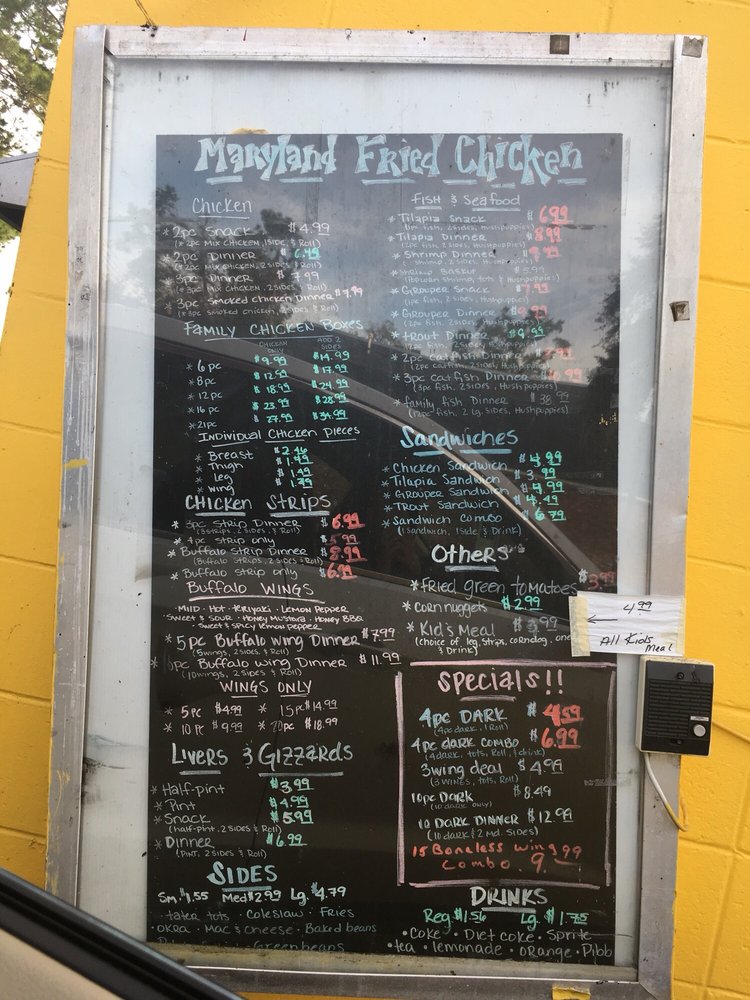 Maryland Fried Chicken
Chicken
* 2pc Snack $4.99
(* 2pc Mix Chicken, 1 Side, & Roll)
* 2pc Dinner $6.49
(* 2pc Mix Chicken, 2 Sides, & Roll)
* 3pc Dinner $7.99
(* 3pc Mix Chicken, 2 Sides, & Roll)
* 3pc Smoked Chicken Dinner $7.99
(* 3pc Smoked Chicken, 2 Sides, & Roll)
Family Chicken Boxes
Chicken Only Add 2 Sides
* 6 pc $9.99 $14.99
* 8pc $12.99 $17.99
* 12 pc $18.99 $24.99
* 16 pc $23.99 $28.99
* 21pc $27.99 $34.99
Individual Chicken Pieces
* Breast $2.46
* Thigh $1.99
* Leg $1.49
* Wing $1.39
Chicken Strips
* 3pc Strip Dinner $6.99
(3 Strips, 2 Sides, & Roll)
* 4pc Strip only $5.99
* Buffalo Strip Dinner $8.99
(Buffalo Strips, 2 Sides & Roll)
* Buffalo Strip only $6.99
Buffalo Wings
Mild - Hot - Teriyaki - Lemon Pepper
Sweet & Sour - Honey Mustard - Honey BBQ
Sweet & Spicy Lemon Pepper
* 5pc Buffalo Wing Dinner $7.99
(5 wings, 2 Sides, & Roll)
* pc Buffalo Wing Dinner $11.99
(10 wings, 2 Sides, & Roll)
Wings Only
* 5 pc $4.99 * 15 pc $14.99
* 10 pc $9.99 * 20pc $18.99
Livers & Gizzards
* Half-pint $3.99
* Pint $4.99
* Snack $5.99
(half-pint, 2 Sides & Roll)
* Dinner $6.99
(Pint, 2 Sides & Roll)
Sides
Sm. $1.55 Med $2.99 Lg. $4.79
tater tots · Coleslaw · Fries
okra · Mac & Cheese · Baked beans
Green beans
Fish & Seafood
* Tilapia Snack $6.99
(1pc fish, 2 sides, Hushpuppies)
* Tilapia Dinner $8.99
(2pc fish, 2 sides, Hushpuppies)
* Shrimp Dinner $9.49
(shrimp, 2 sides, Hushpuppies)
* Shrimp Basket $5.99
(Popcorn shrimp, tots & Hushpuppies)
* Grouper Snack $7.99
(1pc fish, 2 sides, Hushpuppies)
* Grouper Dinner
(2pc fish, 2 sides, Hushpuppies)
* Trout Dinner
(fish, 2 sides, Hushpuppies)
* 2pc Catfish Dinner
(2pc catfish, 2 sides, Hushpuppies)
* 3pc Catfish Dinner
(3pc fish, 2 sides, Hushpuppies)
* Family fish Dinner $38.99
(12pc fish, 2 Lg. sides, Hushpuppies)
Sandwiches
* Chicken Sandwich $4.99
* Tilapia Sandwich $3.99
* Grouper Sandwich $4.99
* Trout Sandwich $4.49
* Sandwich Combo $6.79
(1 Sandwich, 1 Side, & Drink)
Others
* Fried green tomatoes $3.99
* Corn nuggets $2.99
* Kid's Meal $3.99
(choice of leg, strips, corndog, one
& Drink)
4.99
All Kids
Meal
Specials!!
4pc Dark $4.59
(4pc dark, 1 Roll)
4pc dark combo $6.99
(4 dark, tots, Roll, & drink)
3 wing deal $4.99
(3 wings, tots, Roll)
10pc Dark $8.49
(10 dark only)
10 Dark Dinner $12.99
(10 dark & 2 md. sides)
15 Boneless Wing
Combo. 9.99
Drinks
Reg. $1.56 Lg. $1.75
· Coke · Diet Coke · Sprite
· tea · lemonade · orange · Pibb